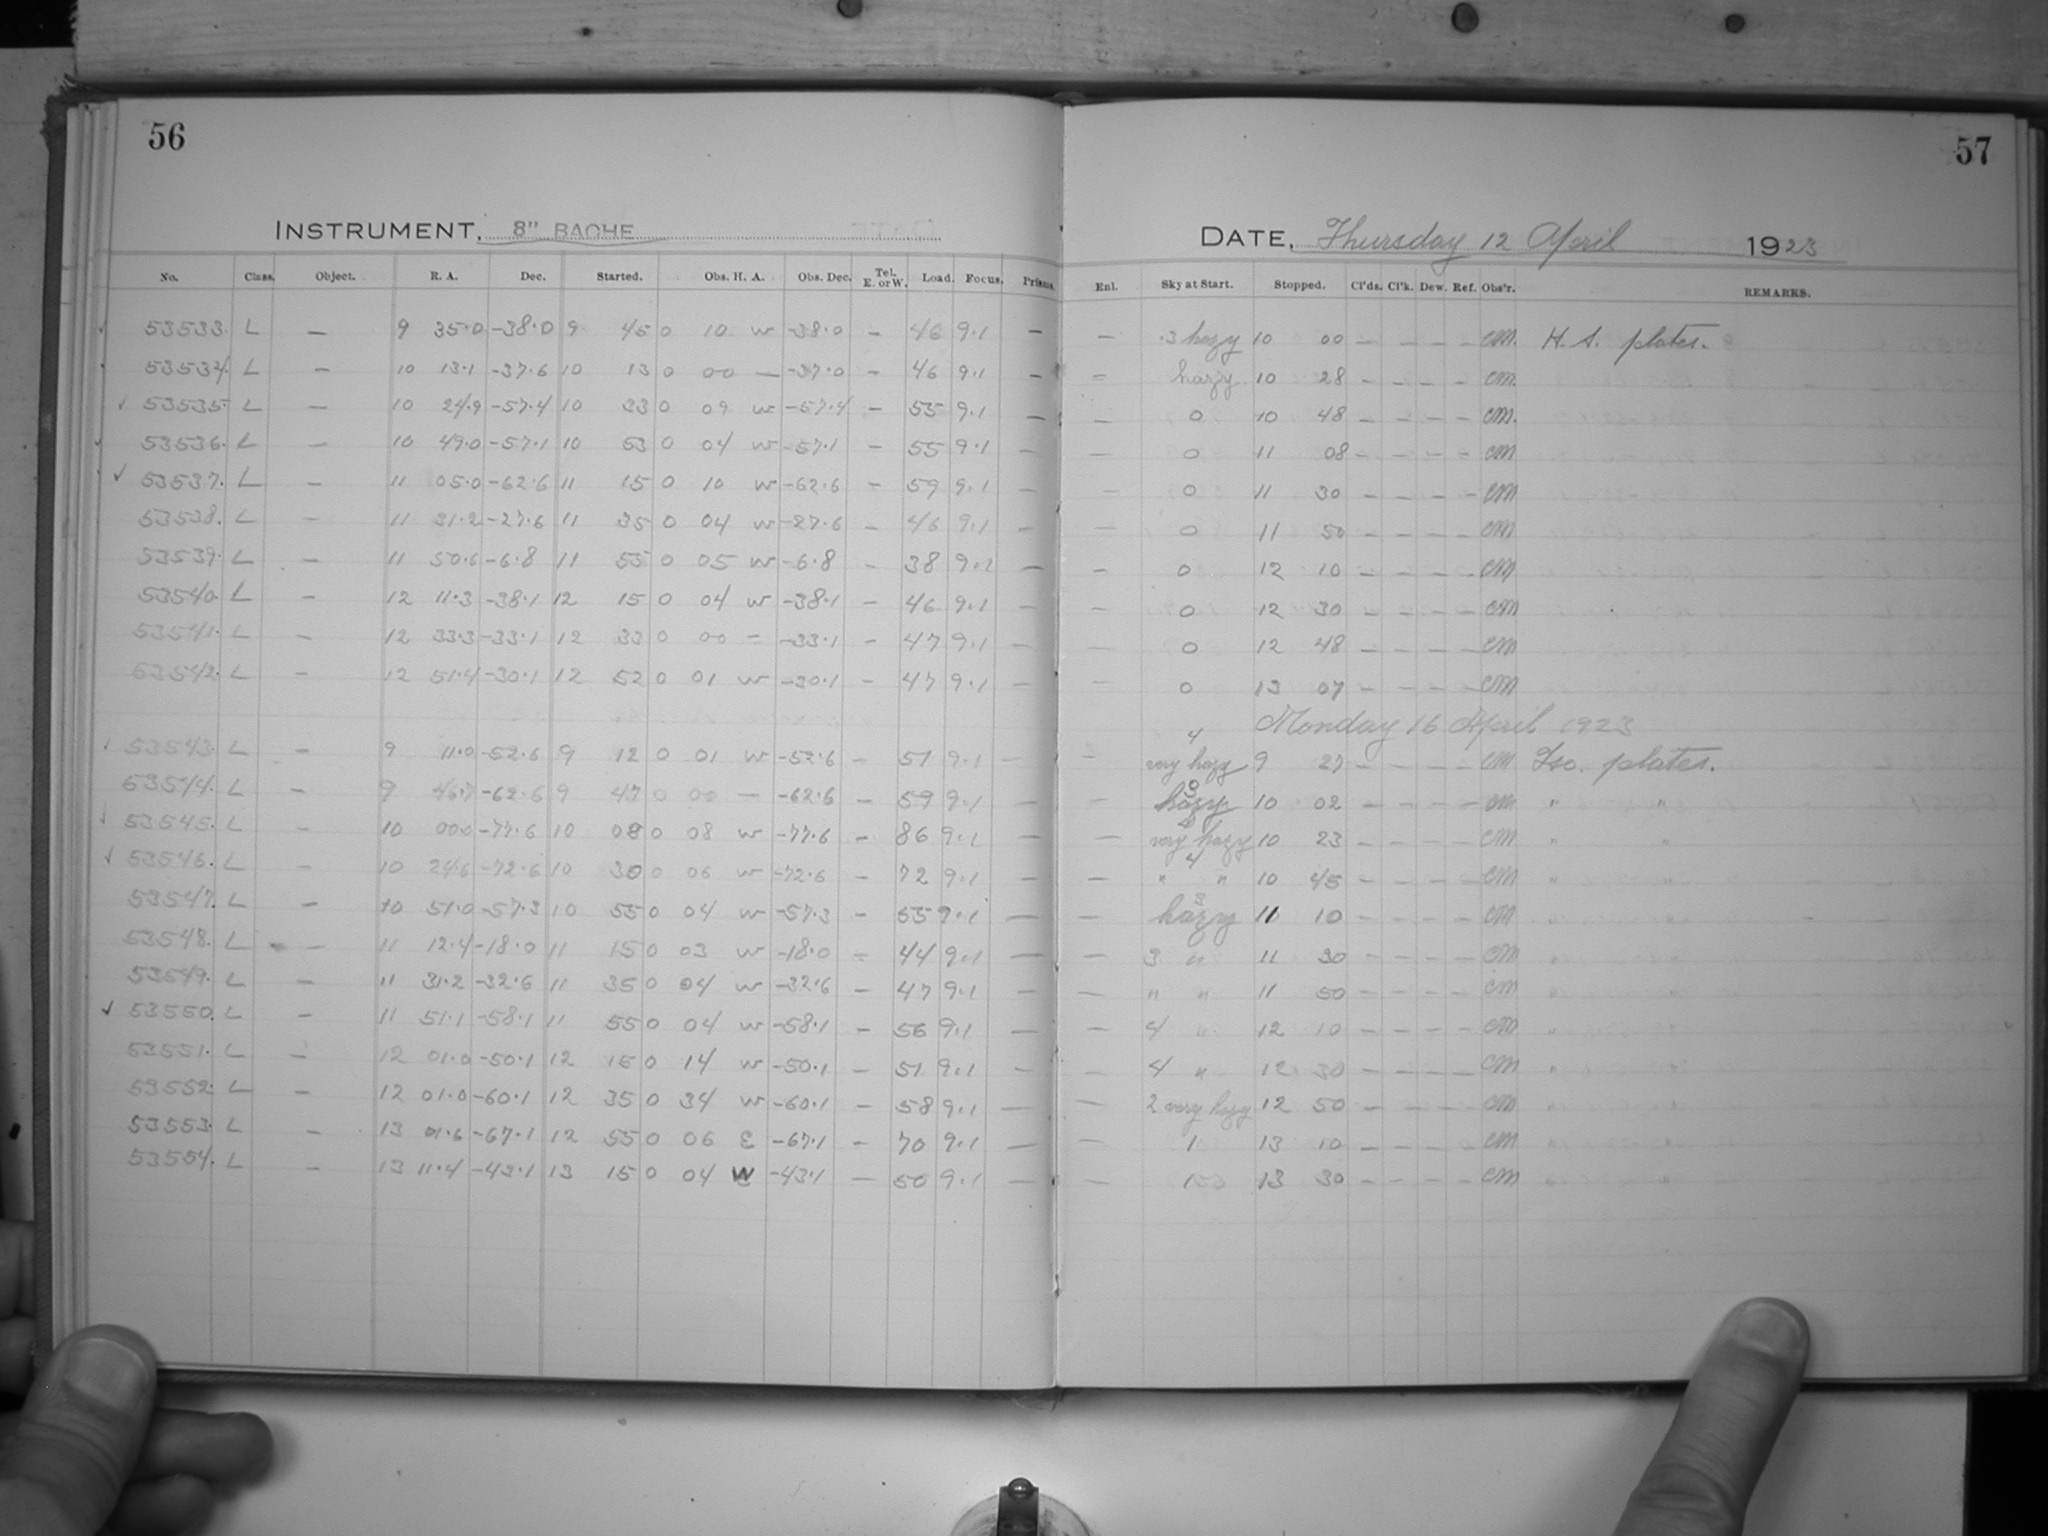 56
INSTRUMENT, 8" BACHE
No. Class. Object. R. A. Dec. Started. Obs. H. A. Obs. Dec. Tel. E. or W. Load. Focus. Prisms.
53533. L — 9 35.0 -38.0 9 45 0 10 W -38.0 — 46 9.1 —
53534. L — 10 13.1 -37.6 10 13 0 00 — -37.0 — 46 9.1 —
✓ 53535. L — 10 24.9 -57.4 10 33 0 09 W -57.4 — 55 9.1 —
53536. L — 10 49.0 -57.1 10 53 0 04 W -57.1 — 55 9.1 —
✓ 53537. L — 11 05.0 -62.6 11 15 0 10 W -62.6 — 59 9.1 —
53538. L — 11 31.2 -27.6 11 35 0 04 W -27.6 — 46 9.1 —
53539. L — 11 50.6 -6.8 11 55 0 05 W -6.8 — 38 9.1 —
53540. L — 12 11.3 -38.1 12 15 0 04 W -38.1 — 46 9.1 —
53541. L — 12 33.3 -33.1 12 33 0 00 — -33.1 — 47 9.1 —
53542. L — 12 51.4 -30.1 12 52 0 01 W -30.1 — 47 9.1 —
53543. L — 9 11.0 -52.6 9 12 0 01 W -52.6 — 51 9.1 —
53544. L — 9 46.7 -62.6 9 47 0 00 — -62.6 — 59 9.1 —
53545. L — 10 00.0 -77.6 10 08 0 08 W -77.6 — 86 9.1 —
✓ 53546. L — 10 24.6 -72.6 10 30 0 06 W -72.6 — 72 9.1 —
53547. L — 10 51.0 -57.3 10 55 0 04 W -57.3 — 55 9.1 —
53548. L — 11 12.4 -18.0 11 15 0 03 W -18.0 — 44 9.1 —
53549. L — 11 31.2 -32.6 11 35 0 04 W -32.6 — 47 9.1 —
✓ 53550. L — 11 51.1 -58.1 11 55 0 04 W -58.1 — 56 9.1 —
53551. L — 12 01.0 -50.1 12 15 0 14 W -50.1 — 51 9.1 —
53552. L — 12 01.0 -60.1 12 35 0 34 W -60.1 — 58 9.1 —
53553. L — 13 01.6 -67.1 12 55 0 06 E -67.1 — 70 9.1 —
53554. L — 13 11.4 -43.1 13 15 0 04 W -43.1 — 50 9.1 —
57
DATE, Thursday 12 April 1923
Enl. Sky at Start. Stopped. Cl'ds. Cl'k. Dew. Ref. Obs'r. REMARKS.
— 3 hazy 10 00 — — — — CM. H. A. plates.
— hazy 10 28 — — — — CM.
— 0 10 48 — — — — CM.
— 0 11 08 — — — — CM
— 0 11 30 — — — — CM
— 0 11 50 — — — — CM
— 0 12 10 — — — — CM
— 0 12 30 — — — — CM
— 0 12 48 — — — — CM
— 0 13 07 — — — — CM
Monday 16 April 1923
— 4 very hazy 9 27 — — — — CM Iso. plates.
— 3 hazy 10 02 — — — — CM " "
— very hazy 10 23 — — — — CM " "
— 4 " " 10 45 — — — — CM " "
— 3 hazy 11 10 — — — — CM " "
— 3 " 11 30 — — — — CM " "
— " " 11 50 — — — — CM " "
— 4 " 12 10 — — — — CM " "
— 4 " 12 30 — — — — CM " "
— 2 very hazy 12 50 — — — — CM " "
— 1 13 10 — — — — CM " "
— 1 13 30 — — — — CM " "